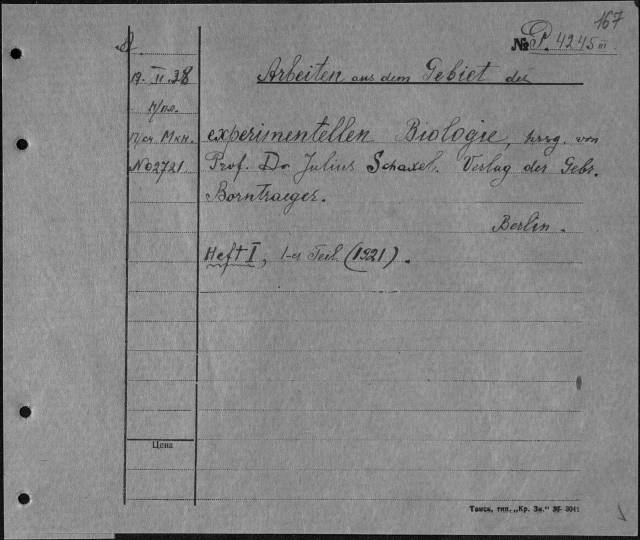 167
№ P. 4245 III
A.
19 II 38
Arbeiten aus dem Gebiet der
н/пл.
П/сч. Мкн.
experimentellen Biologie, hrsg. von
№02721
Prof. Dr Julius Schaxel. Verlag der Gebr.
Borntraeger.
Berlin.
Heft I, 1-er Teil (1921).
Цена
Томск, тип. „Кр. Зн."